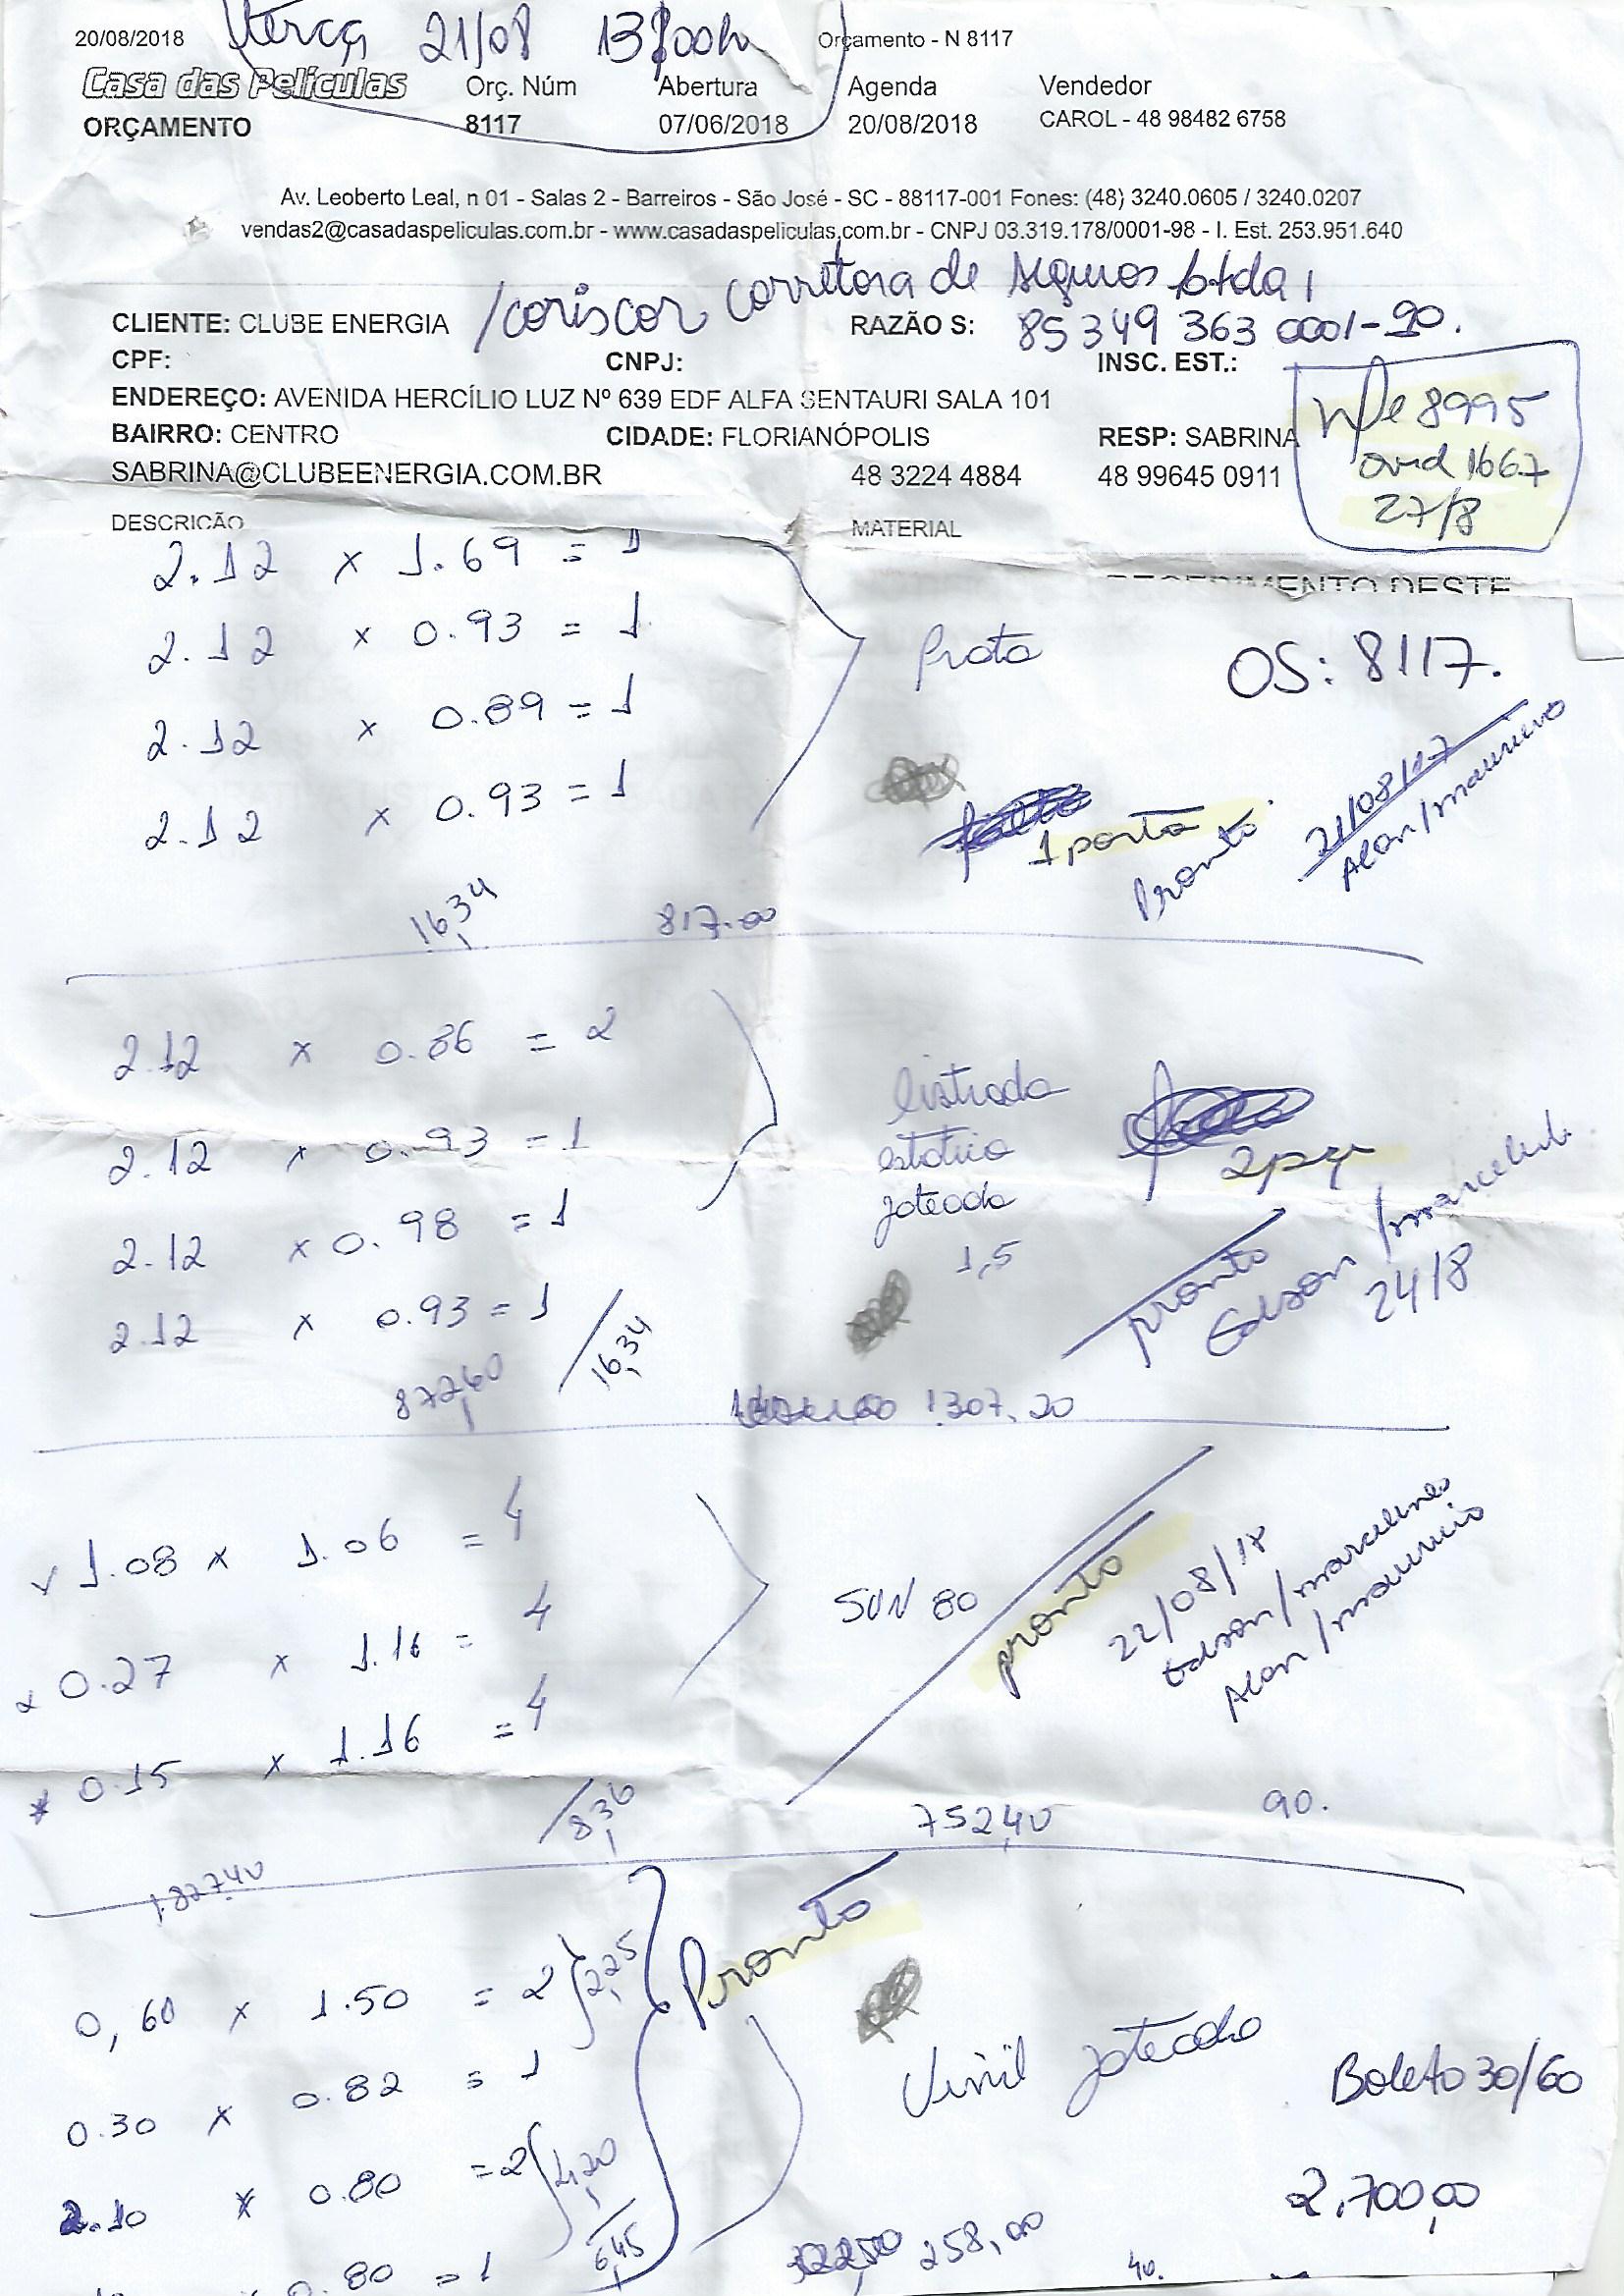 20/08/2018 terça 21/08 13:00h Orçamento - N 8117
Casa das Películas Orç. Núm Abertura Agenda Vendedor
ORÇAMENTO 8117 07/06/2018 20/08/2018 CAROL - 48 98482 6758
Av. Leoberto Leal, n 01 - Salas 2 - Barreiros - São José - SC - 88117-001 Fones: (48) 3240.0605 / 3240.0207
vendas2@casadaspeliculas.com.br - www.casadaspeliculas.com.br - CNPJ 03.319.178/0001-98 - I. Est. 253.951.640
/coriscor corretora de seguros Ltda
CLIENTE: CLUBE ENERGIA RAZÃO S: 85 349 363 0001-90.
CPF: CNPJ: INSC. EST.:
ENDEREÇO: AVENIDA HERCÍLIO LUZ Nº 639 EDF ALFA SENTAURI SALA 101
BAIRRO: CENTRO CIDADE: FLORIANÓPOLIS RESP: SABRINA
SABRINA@CLUBEENERGIA.COM.BR 48 3224 4884 48 99645 0911
8995
1667
27/8
DESCRIÇÃO MATERIAL
2.12 x 1.69 = 1
2.12 x 0.93 = 1
Prata OS: 8117.
2.12 x 0.89 = 1
2.12 x 0.93 = 1
1 porta
Pronto
21/08/17
Alan/mauricio
16,34 817.00
2.12 x 0.86 = 2
2.12 x 0.93 = 1
listrada
estatica
joteada
1,5
2 pç
2.12 x 0.98 = 1
2.12 x 0.93 = 1
pronto
Edson /marcelu
24/8
872,60 /16,34 1.307,20
1.08 x 1.06 = 4
0.27 x 1.16 = 4
SUN 80
pronto
22/08/18
Edson/marcelino
Alan/mauricio
0.15 x 1.16 = 4
8,36 752,40 90.
1.827,40
0,60 x 1.50 = 2 2,25
Pronto
0.30 x 0.82 = 1
Vinil joteado Boleto 30/60
2.10 x 0.80 = 2 4,20
2.700,00
0.80 = 1 6,45 258,00 40.